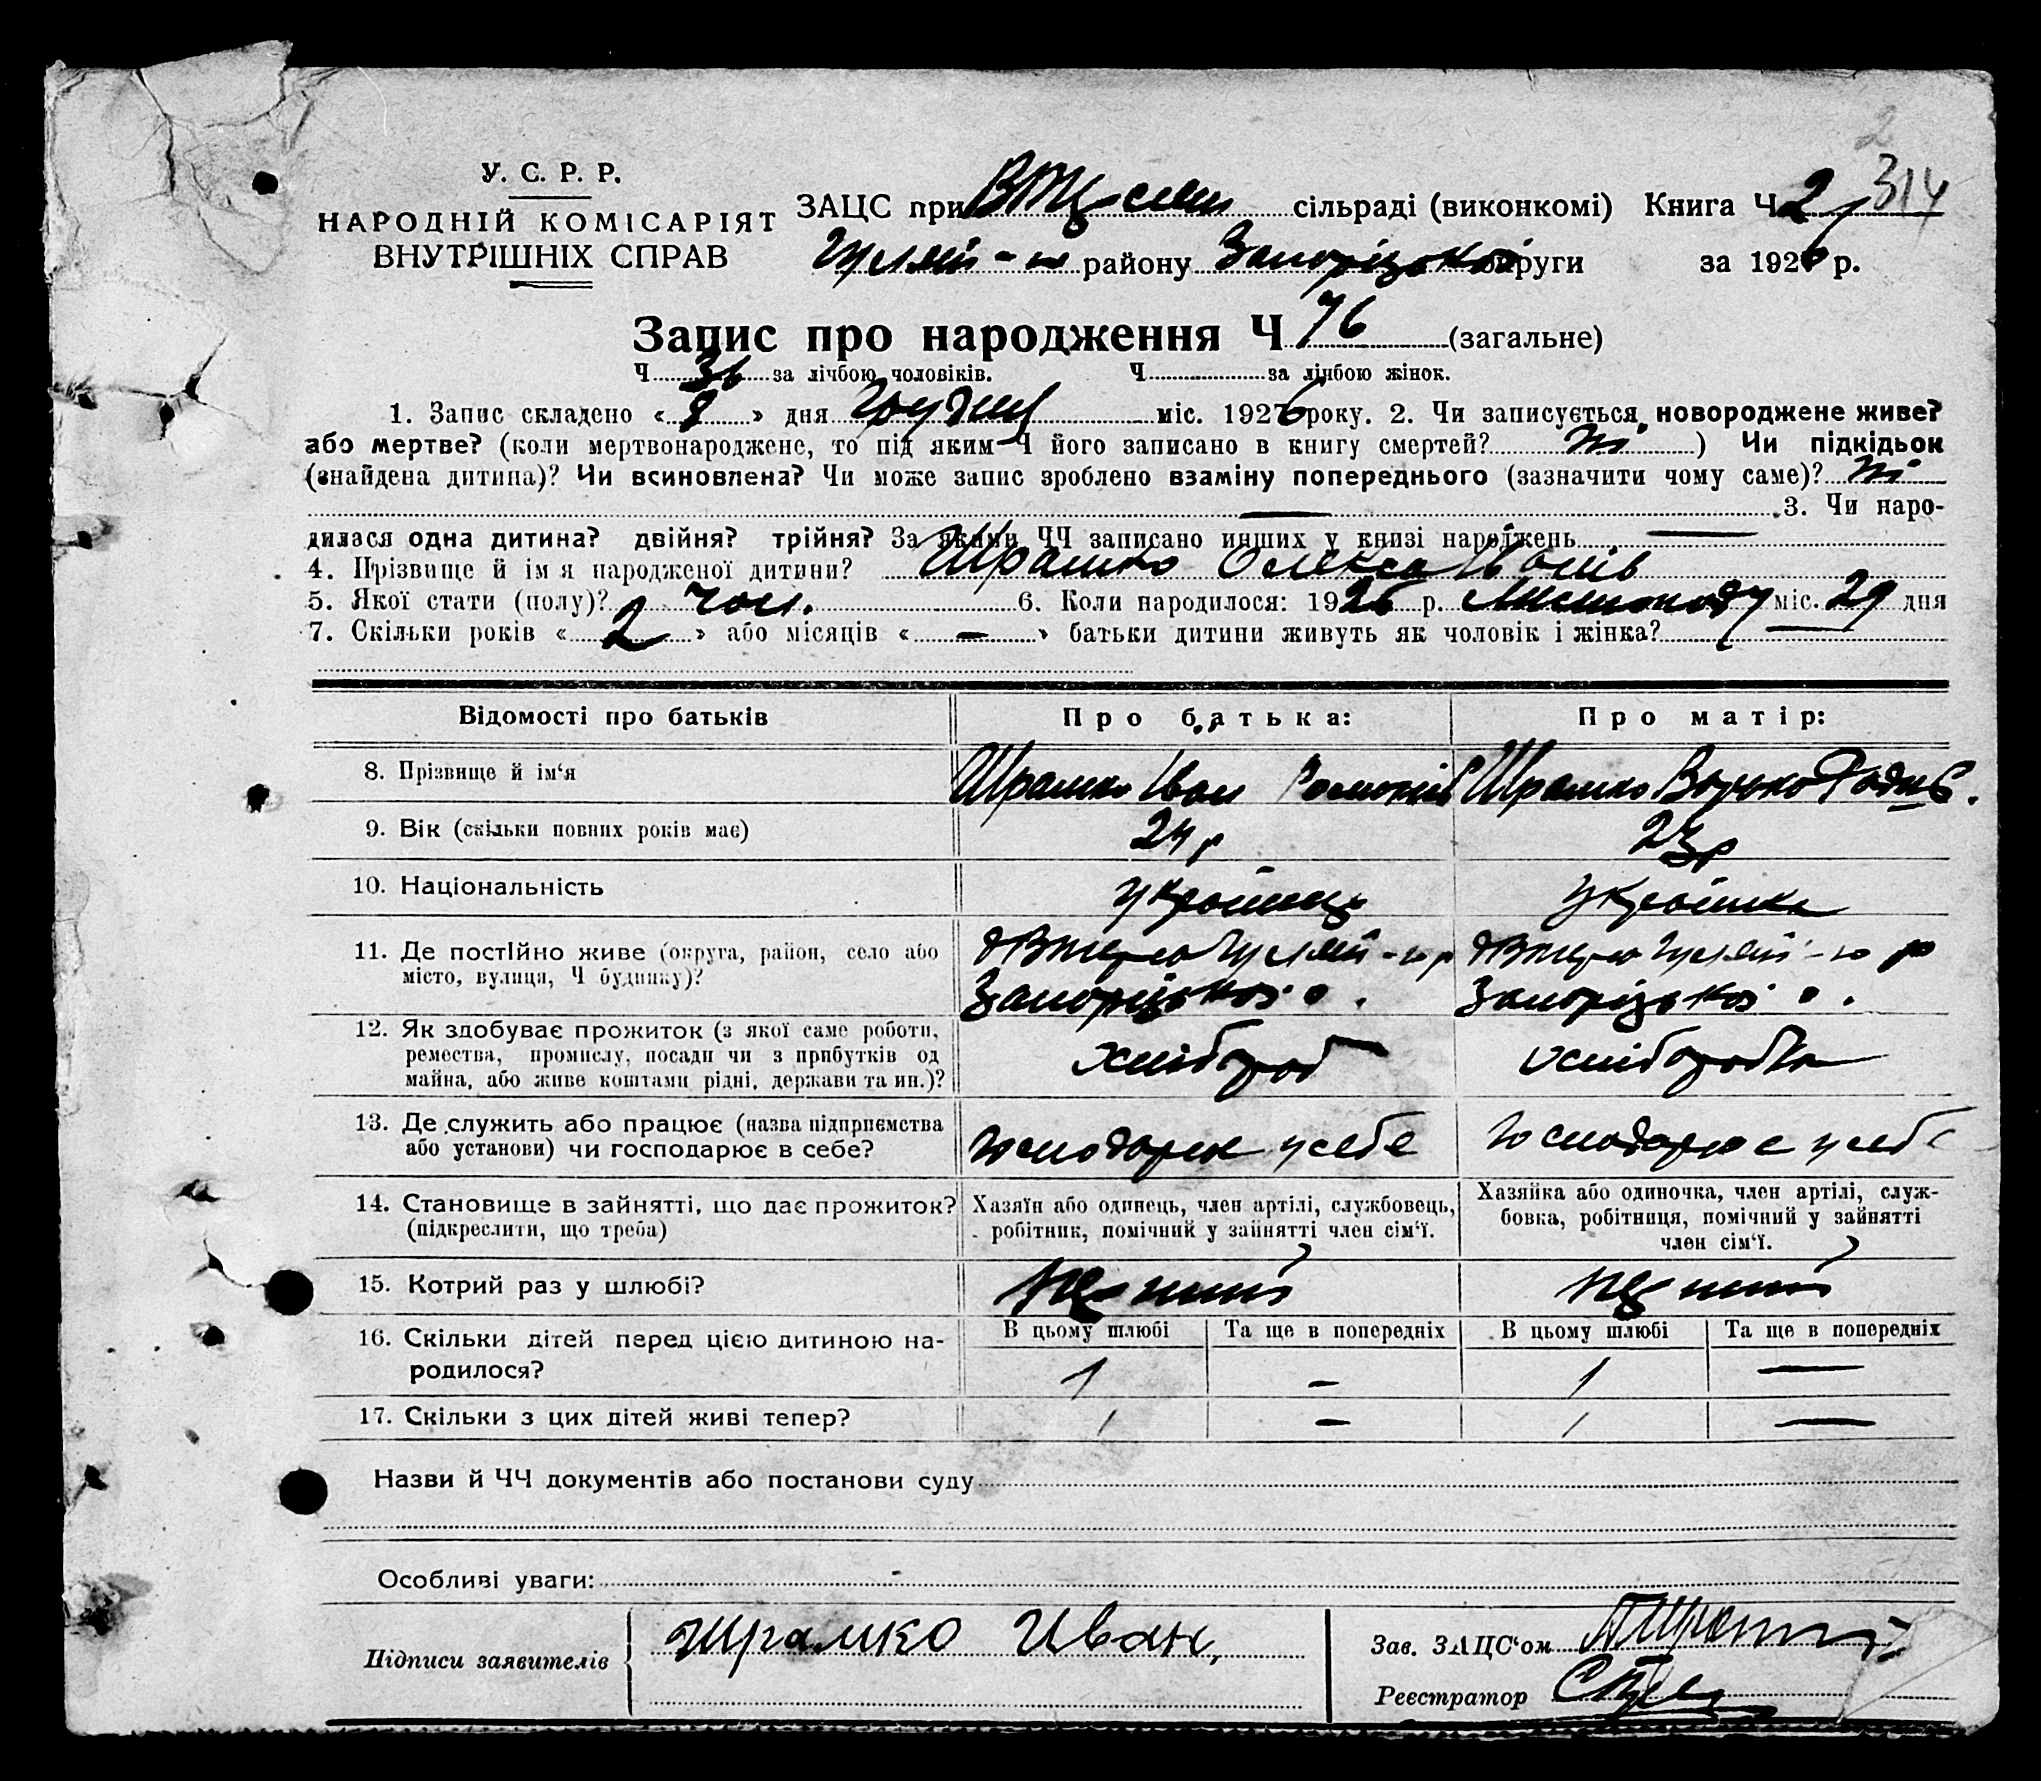 2
314
У. С. Р. Р.
НАРОДНІЙ КОМІСАРІЯТ
ВНУТРІШНІХ СПРАВ
ЗАЦС при сільраді (виконкомі) Книга Ч 2
району Запорізької округи за 1926 р.
Запис про народження Ч 76 (загальне)
Ч 36 за лічбою чоловіків. Ч за лічбою жінок.
1. Запис складено « 8 » дня Грудня міс. 1926 року. 2. Чи записується новороджене живе?
або мертве? (коли мертвонароджене, то під яким Ч його записано в книгу смертей? ні ) Чи підкідьок
(знайдена дитина)? Чи всиновлена? Чи може запис зроблено взаміну попереднього (зазначити чому саме)? ні
— 3. Чи наро-
дилася одна дитина? двійня? трійня? За якими ЧЧ записано инших у книзі народжень —
4. Прізвище й ім я народженої дитини? Шрамко Олекса Іванів
5. Якої стати (полу)? чол. 6. Коли народилося: 1926 р. Листопаду міс. 29 дня
7. Скільки років « 2 » або місяців « — » батьки дитини живуть як чоловік і жінка? —
Відомості про батьків Про батька: Про матір:
8. Прізвище й ім‘я Шрамко Іван Шрамко
9. Вік (скільки повних років має) 24 р 23 р
10. Національність українець українка
11. Де постійно живе (округа, район, село або
місто, вулиця, Ч будинку)? Запорізької о. Запорізької о.
12. Як здобуває прожиток (з якої саме роботи,
ремества, промислу, посади чи з прибутків од
майна, або живе коштами рідні, держави та ин.)? хлібороб хліборобка
13. Де служить або працює (назва підприємства
або установи) чи господарює в себе? господарює у себе господарює у себе
14. Становище в зайнятті, що дає прожиток?
(підкреслити, що треба)
Хазяїн або одинець, член артілі, службовець,
робітник, помічний у зайнятті член сім‘ї.
Хазяйка або одиночка, член артілі, служ-
бовка, робітниця, помічний у зайнятті
член сім‘ї.
15. Котрий раз у шлюбі? перший перший
16. Скільки дітей перед цією дитиною на-
родилося?
В цьому шлюбі Та ще в попередніх В цьому шлюбі Та ще в попередніх
1 — 1 —
17. Скільки з цих дітей живі тепер? 1 — 1 —
Назви й ЧЧ документів або постанови суду
Особливі уваги:
Підписи заявителів Шрамко Иван,
Зав. ЗАЦС‘ом
Реєстратор